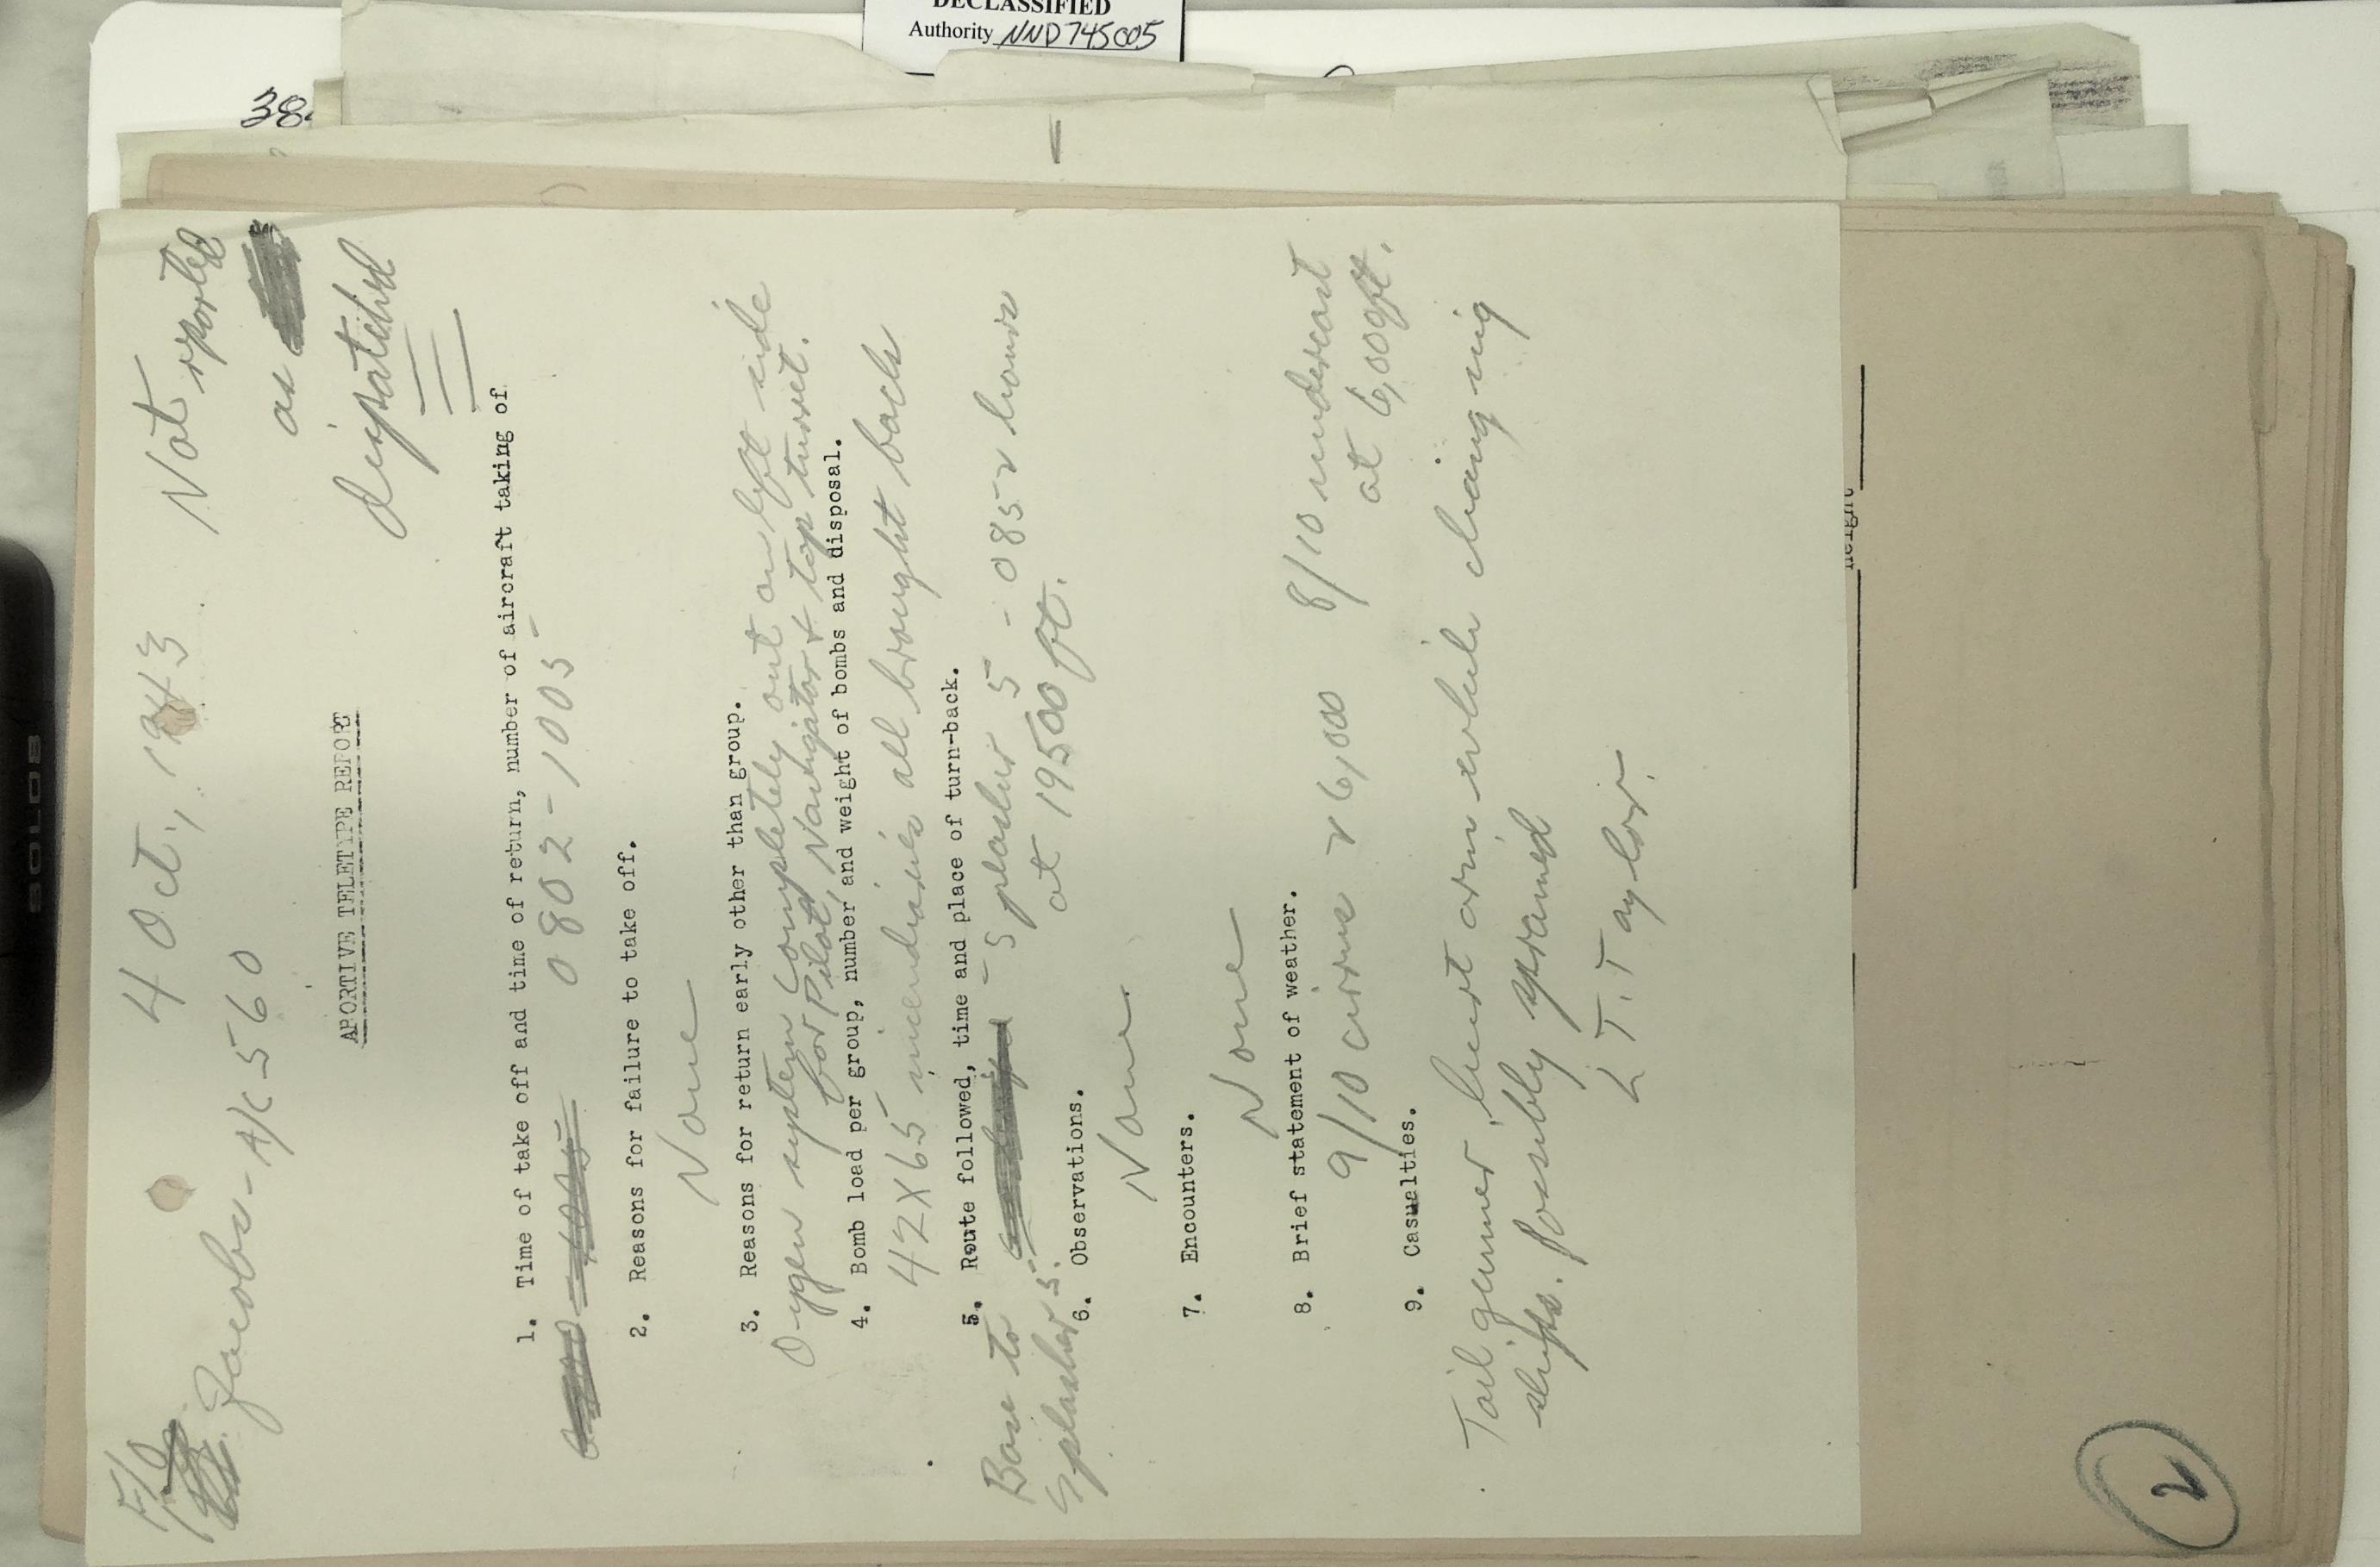 DECLASSIFIED
Authority NND745005
38
F/O Jacobs - A/C 560
4 Oct., 1943
Not reported
as
dispatched
APORTIVE TELETYPE REPORT
1. Time of take off and time of return, number of aircraft taking of
0802 - 1005 -
2. Reasons for failure to take off.
None
3. Reasons for return early other than group.
Oxygen system completely out on left side
for Pilot, Navigator & top turret.
4. Bomb load per group, number and weight of bombs and disposal.
42X65 incendiaries all brought back
5. Route followed, time and place of turn-back.
Base to - Splasher 5 - 0852 hours
Splasher 5. at 19500 ft.
6. Observations.
None.
7. Encounters.
None
8. Brief statement of weather.
9/10 cirrus 26,000 8/10 undercast
at 6,000ft.
9. Casualties.
Tail gunner, hurt arm while changing
ships. Possibly sprained
L T. Taylor.
height
2